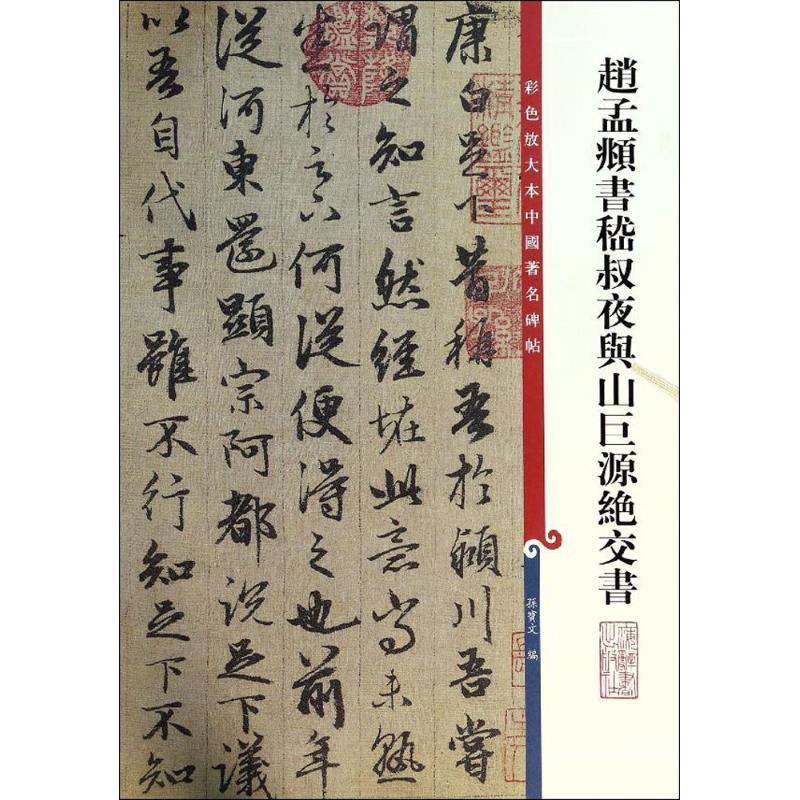 趙孟頫書嵇叔夜與山巨源絶交書
彩色放大本中國著名碑帖
孫寶文 編
康白足下昔稱吾於潁川吾嘗
謂之知言然經怪此意尚未熟
悉於足下何從便得之也前年
從河東還顯宗阿都說足下議
以吾自代事雖不行知足下不知